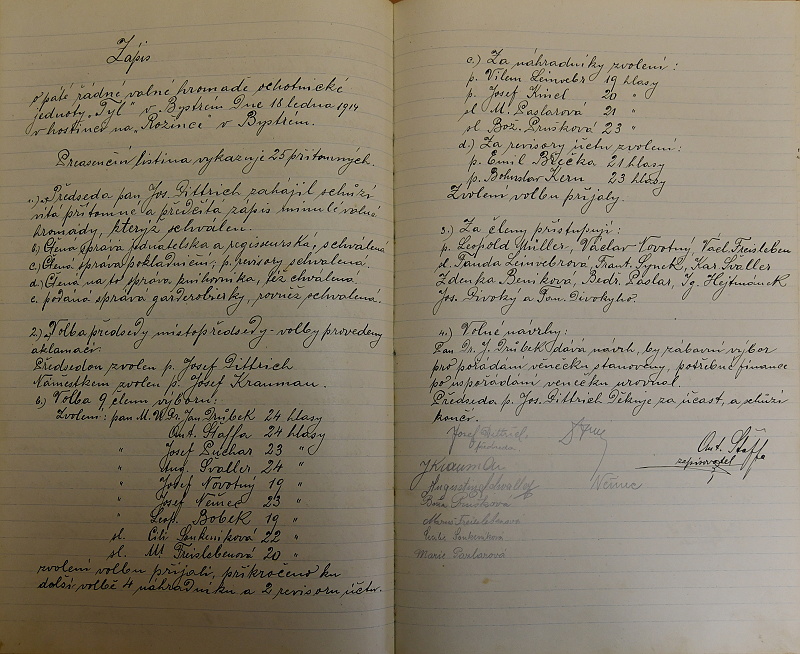 Zápis
o páté řádné valné hromadě ochotnické
jednoty „Tyl" v Bystrém dne 18 ledna 1914
v hostinci na „Rožínce" v Bystrém.
Presenční listina vykazuje 25 přítomných.
Předseda pan Jos. Dittrich zahájil schůzi
vítá přítomné a předčítá zápis minulé valné
hromady, kterýž schválen.
b) Čtena správa jednatelska a regisseurská, schválena
c) Čtena správa pokladniční, p. revisory schvalena.
d) Čtena na to správa knihovníka, též chválena
e. podana správa garderobierky, rovněz schvalená.
2.) Volba předsedy místopředsedy - volby provedeny
aklamací:
Předsedou zvolen p. Josef Dittrich
Náměstkem zvolen p. Josef Krauman.
b) Volba 9 členů výboru:
Zvoleni: pan M. U. Dr. Jan Drúbek 24 hlasy
Ant. Štaffa 24 hlasy
" Josef Puchar 23 "
" Aug. Švaller 24 "
" Josef Novotný 19 "
" Josef Němec 23 "
" Leop. Bobek 19 "
sl. Cili Soukeníková 22 "
sl. M. Treislebenová 20 "
zvolení volbu přijali, přikročeno ku
další volbě 4 náhradníku a 2 revisoru účtu.
c.) Za náhradníky zvolení:
p. Vilém Leinvebr 19 hlasy
p. Josef Kinel 20 "
sl. M. Paslarová 21 "
sl. Bož. Prušková 23 "
d.) Za revisory účtu zvolení:
p. Emil Břečka 21 hlasy
p. Bohuslav Kern 23 hlasy
Zvolení volbu přijaly.
3.) Za členy přistupují:
p. Leopold Müller, Václav Novotný, Václ. Treisleben
sl. Fanda Leinvebrová, Frant. Synek, Kar. Švaller
Zdenka Beníkova, Bedr. Paslar, Ig. Hejtmánek
Jos. Divoký a Fan. Divokýho.
4.) Volné návrhy:
Pan Dr. J. Drúbek dává návrh, by zábavní výbor
pro pořádání věnečku stanovený, potřebné finance
po uspořádání věnečku urovnal.
Předseda p. Jos. Dittrich děkuje za účast, a schůzi
končí.
Josef Dittrich
předseda
Ant. Štaffa
zapisovatel
J Krauman
Němec
Bož. Prušková
Marie Treislebenová
Marie Paslarová